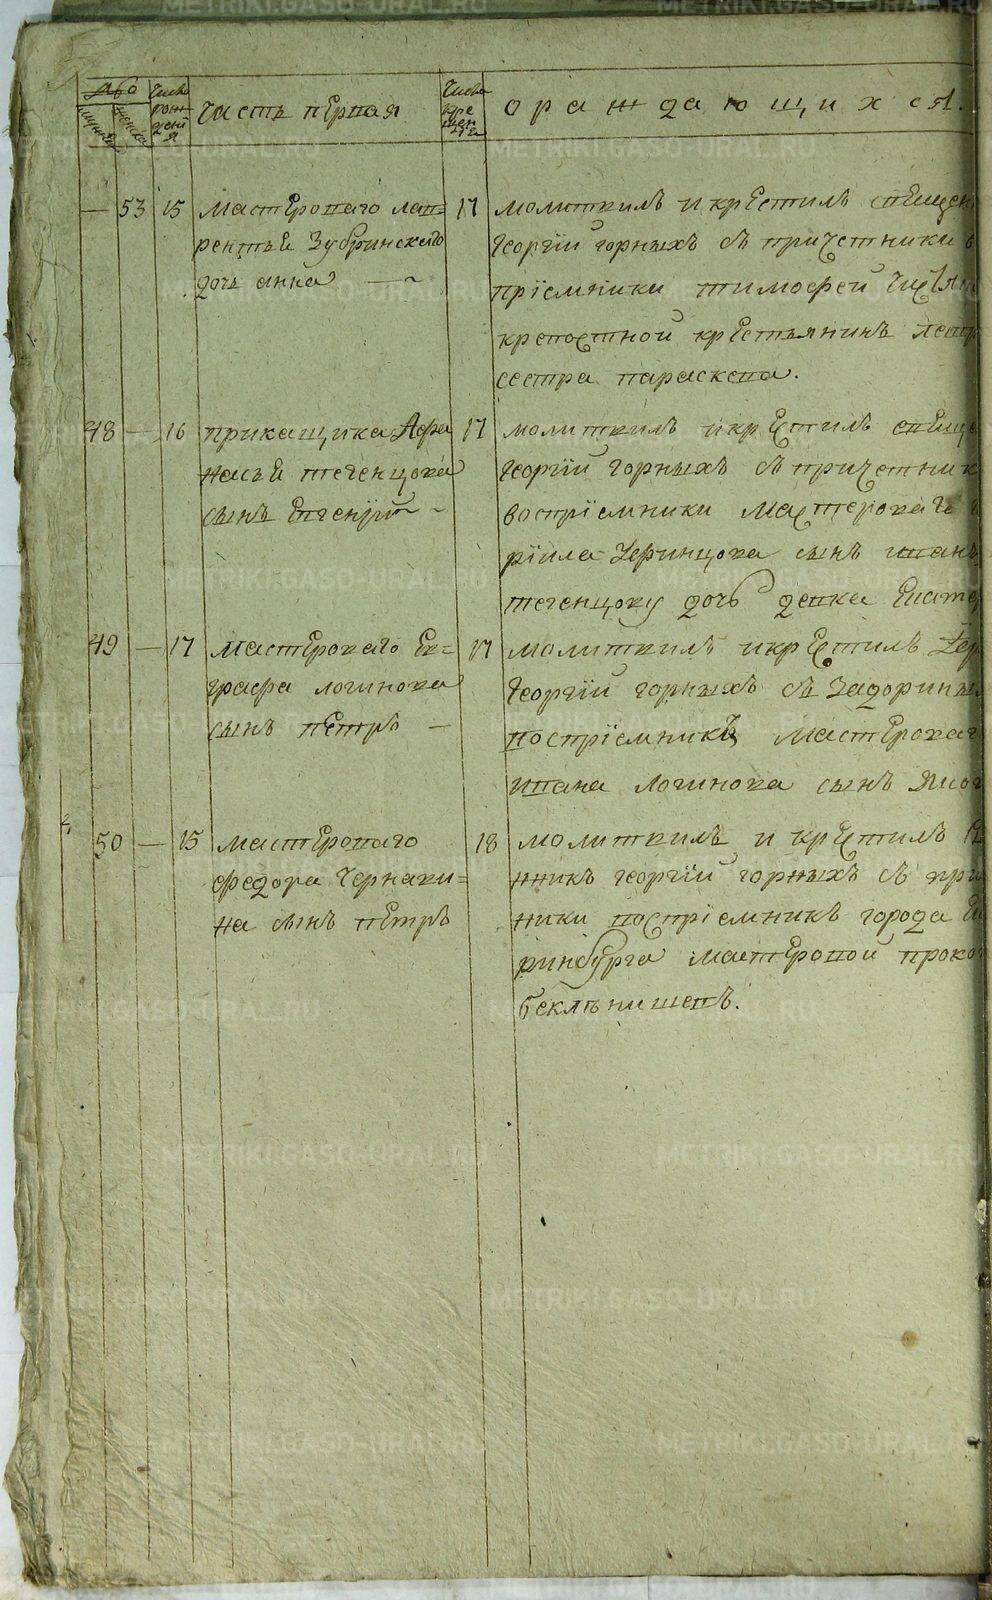 Число рождения
часть первая
Число крещения
о раждающихся.
— 53 15 мастероваго лав=
рентья Зубринскаго
дочь анна —
17 молитвилъ и крестилъ
георгiй горныхъ съ причетники
прiемники тимофей
крепостной крестьянинъ
сестра параскева.
48 — 16 прикащика Афа
насья тегенцова
сынъ Евгенiй —
17 молитвилъ и крестилъ
георгiй горныхъ съ причетник
воспрiемники мастероваго
сынъ иванъ
тегенцову дочь девка Екатер
49 — 17 мастероваго Ев=
графа логинова
сынъ петръ —
17 молитвилъ и крестилъ
георгiй горныхъ съ
воспрiемникъ мастероваг
ивана логинова сынъ
50 — 15 мастероваго
федора Чернави=
на сынъ петръ
18 молитвилъ и крестилъ
нникъ георгiй горныхъ съ при
ники воспрiемникъ города Ек
ринбурга мастеровой проко
беклѣнишевъ.
METRIKI.GASO-URAL.RU